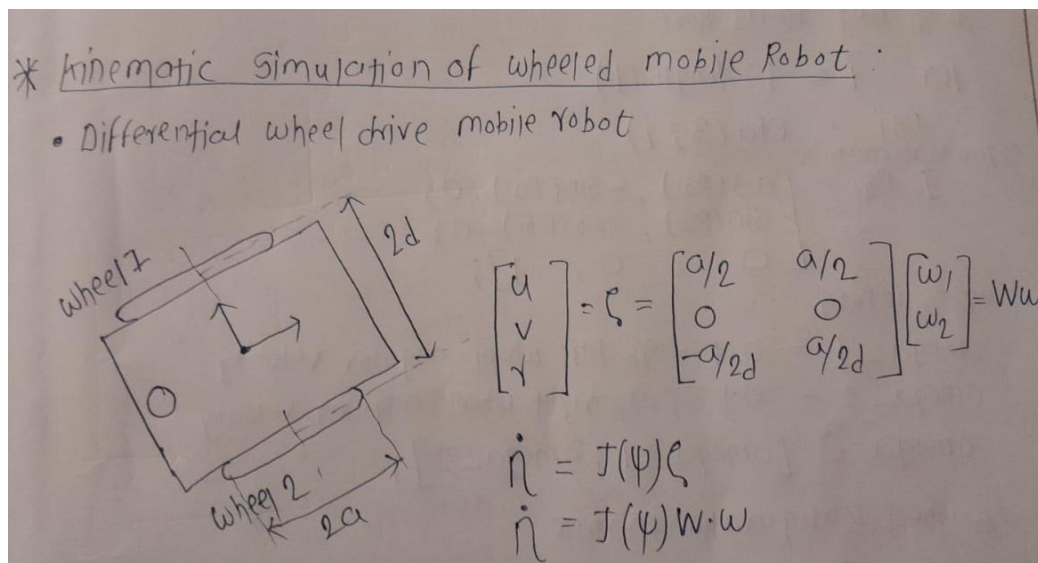 * Kinematic Simulation of wheeled mobile Robot :
• Differential wheel drive mobile robot
wheel 1
2d
wheel 2
2a
[u v r] = ζ = [a/2 a/2; 0 0; -a/2d a/2d] [ω1 ω2] = Wω
η̇ = J(ψ)ζ
η̇ = J(ψ)W·ω